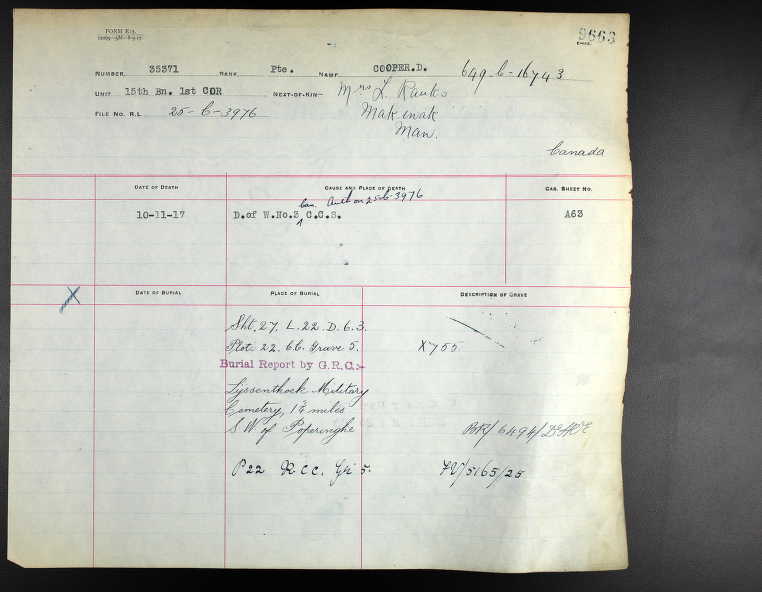 FORM R/3.
9663
NUMBER 35371 RANK Pte. NAME COOPER.D. 649-C-16743
UNIT 15th Bn. 1st COR NEXT-OF-KIN— Mrs L.
FILE NO. R.L 25-C-3976 Makinak
Man.
Canada
DATE OF DEATH CAUSE AND PLACE OF DEATH CAS. SHEET NO.
Can. Auth on 25-C-3976
10-11-17 D.of W.No.3 C.C.S. A63
X DATE OF BURIAL PLACE OF BURIAL DESCRIPTION OF GRAVE
Sht. 27. L.22.D.6.3.
Plot. 22. CC. Grave 5. X755
Burial Report by G.R.C.:-
Lijssenthoek Military
Cemetery, 1¾ miles
S.W. of Poperinghe BR/6494/
P22 R.CC. Gr 5. /5165/25